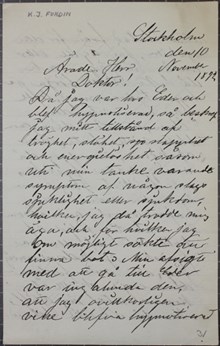 H. J. FORDIN
Stockholm
den 10
November
1892
Ärade Herr
Doktor!
Då jag var hos Eder och
blef hypnotiserad, så
jag mitt tillstånd af
tröghet, slöhet, upp slapphet
och energielöshet såsom
uti min tanke varande
symptom af någon slags
sjuklighet eller sjukdom,
hvilken, jag då trodde mig
äga, och för hvilken jag
om möjligt sökte att
finna bot. Men afsigten
med att gå till Eder
var ingalunda den,
att jag ovilkorligen
ville blifva hypnotiserad